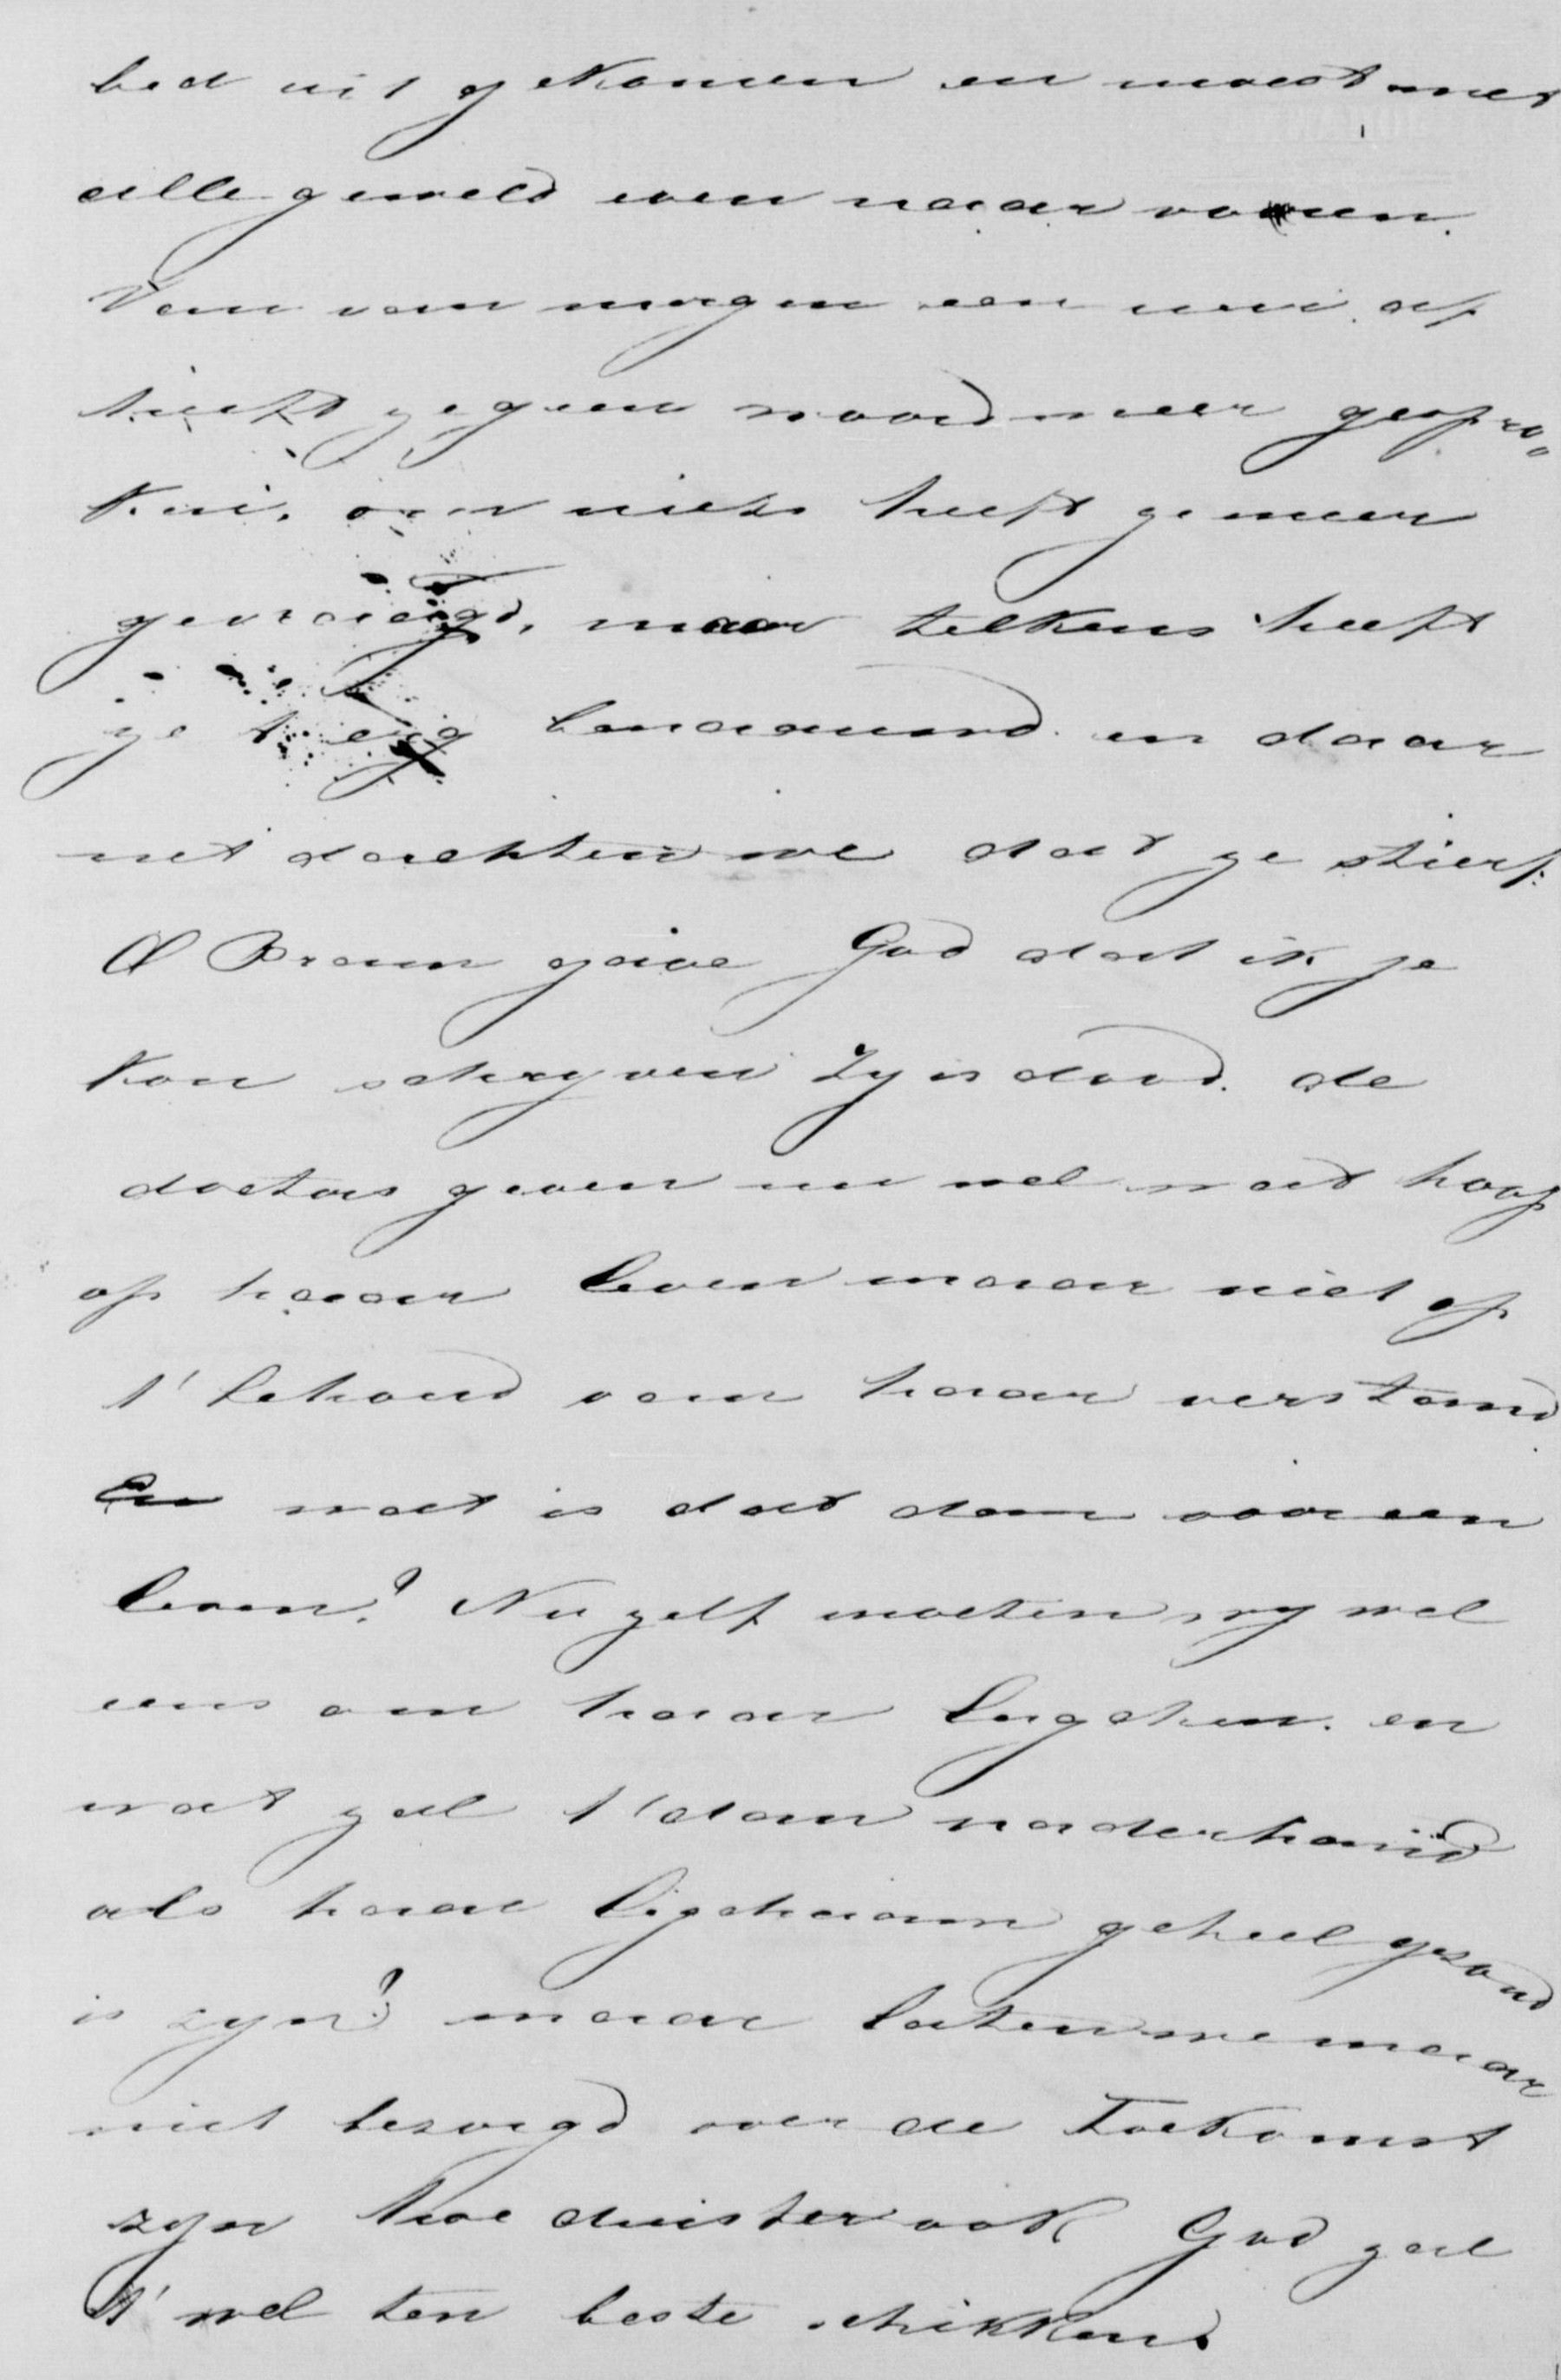 bed uit gekomen en moest met
alle geweld even naar voren.
Van van morgen een uur af
heeft ze geen woord meer gespro„
ken, om niets heeft ze meer
gevraagd, maar telkens heeft
ze benaauwd en daar
net dachten we dat ze stierf.
O Bram gave God dat ik je
kon schryven Zy is dood. de
doctors geven nu wel wat hoop
op haar leven maar niet op
t' behoud van haar verstand
En wat is dat dan voor een
leven? Nu zelf moeten wy wel
eens om haar lagchen. en
wat zal t' dan naderhand
als haar ligchaam geheel gezond
is zyn? maar laten we maar
niet bezorgd over de toekomst
zyn hoe duister ook God zal
t' wel ten beste schikken.